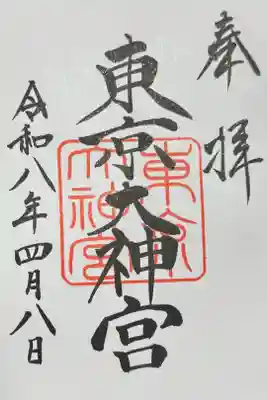 奉拝
東京大神宮
令和八年四月八日
東京大神宮